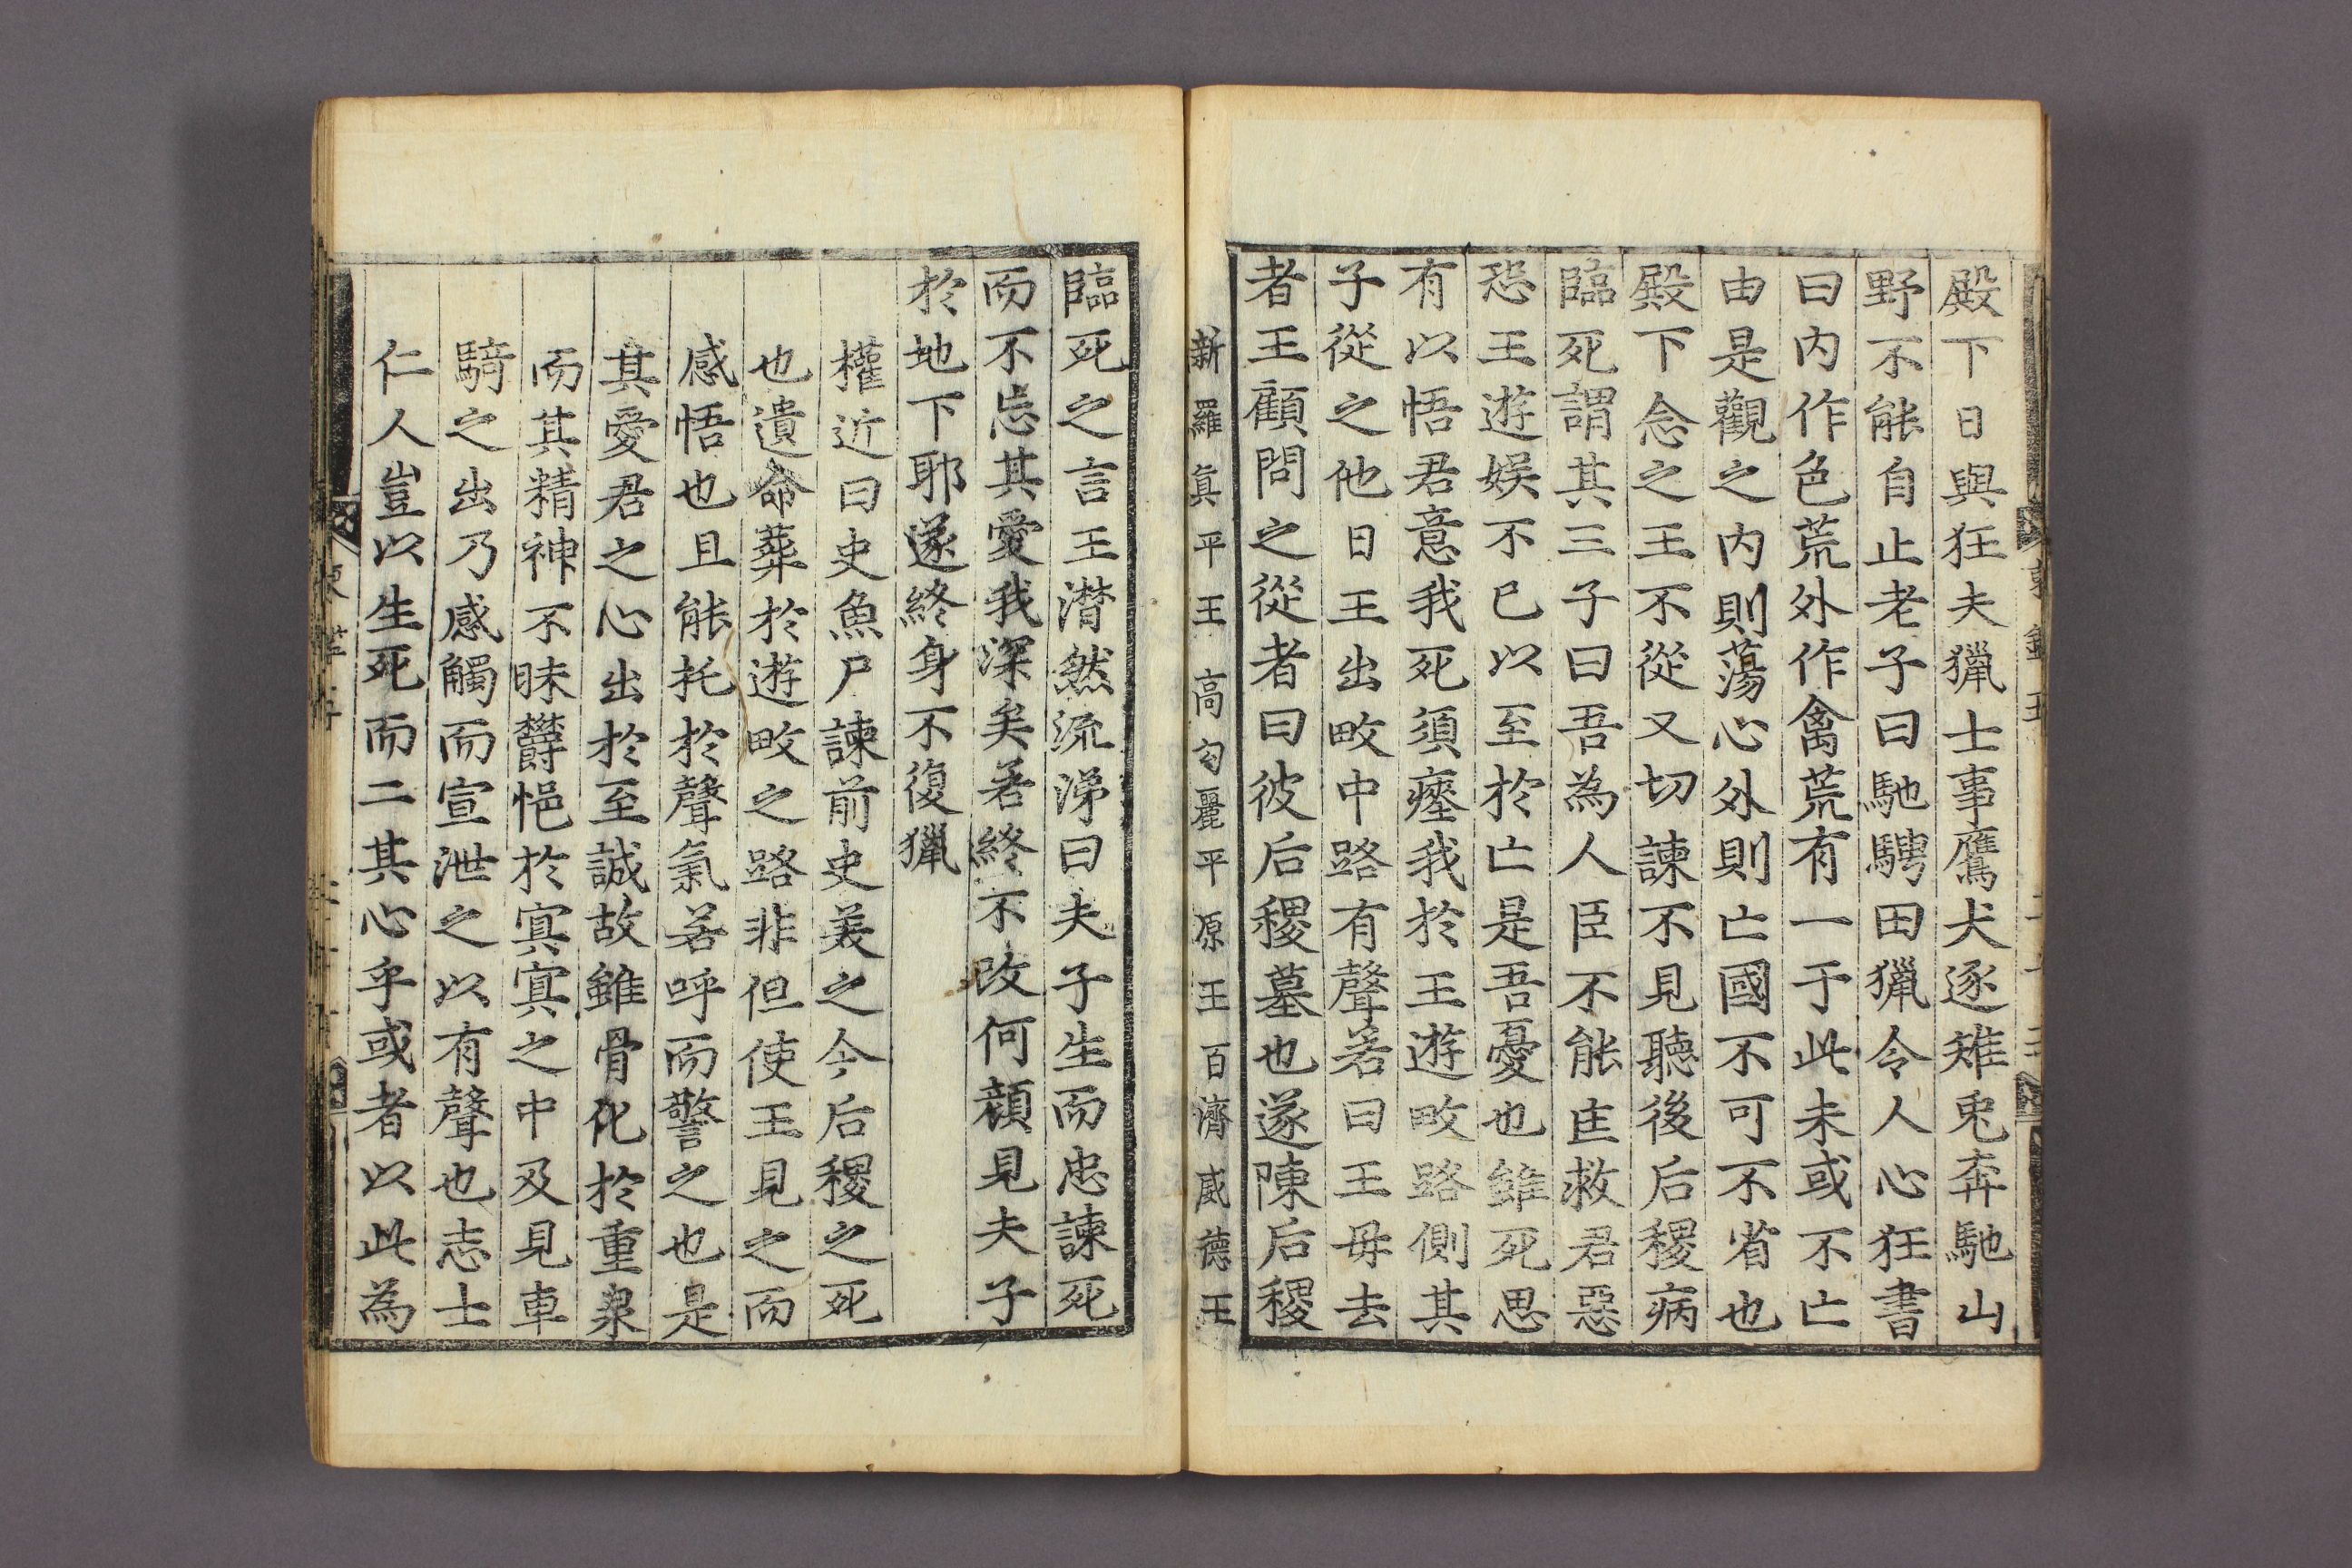 殿下日與狂夫獵士事鷹犬逐雉兎奔馳山
野不能自止老子曰馳騁田獵令人心狂書
曰內作色荒外作禽荒有一于此未或不亡
由是觀之內則蕩心外則亡國不可不省也
殿下念之王不從又切諫不見聽後后稷病
臨死謂其三子曰吾為人臣不能匡救君惡
恐王遊娛不已以至於亡是吾憂也雖死思
有以悟君意我死須瘞我於王遊畋路側其
子從之他日王出畋中路有聲若曰王毋去
者王顧問之從者曰彼后稷墓也遂陳后稷
新羅眞平王 高句麗平原王 百濟威德王
臨死之言王潸然流涕曰夫子生而忠諫死
而不忘其愛我深矣若終不改何顔見夫子
於地下耶遂終身不復獵
權近曰史魚尸諫前史美之今后稷之死
也遺命葬於遊畋之路非但使王見之而
感悟也且能托於聲氣若呼而警之也是
其愛君之心出於至誠故雖骨化於重泉
而其精神不昧欝悒於冥冥之中及見車
騎之出乃感觸而宣泄之以有聲也志士
仁人豈以生死而二其心乎或者以此為